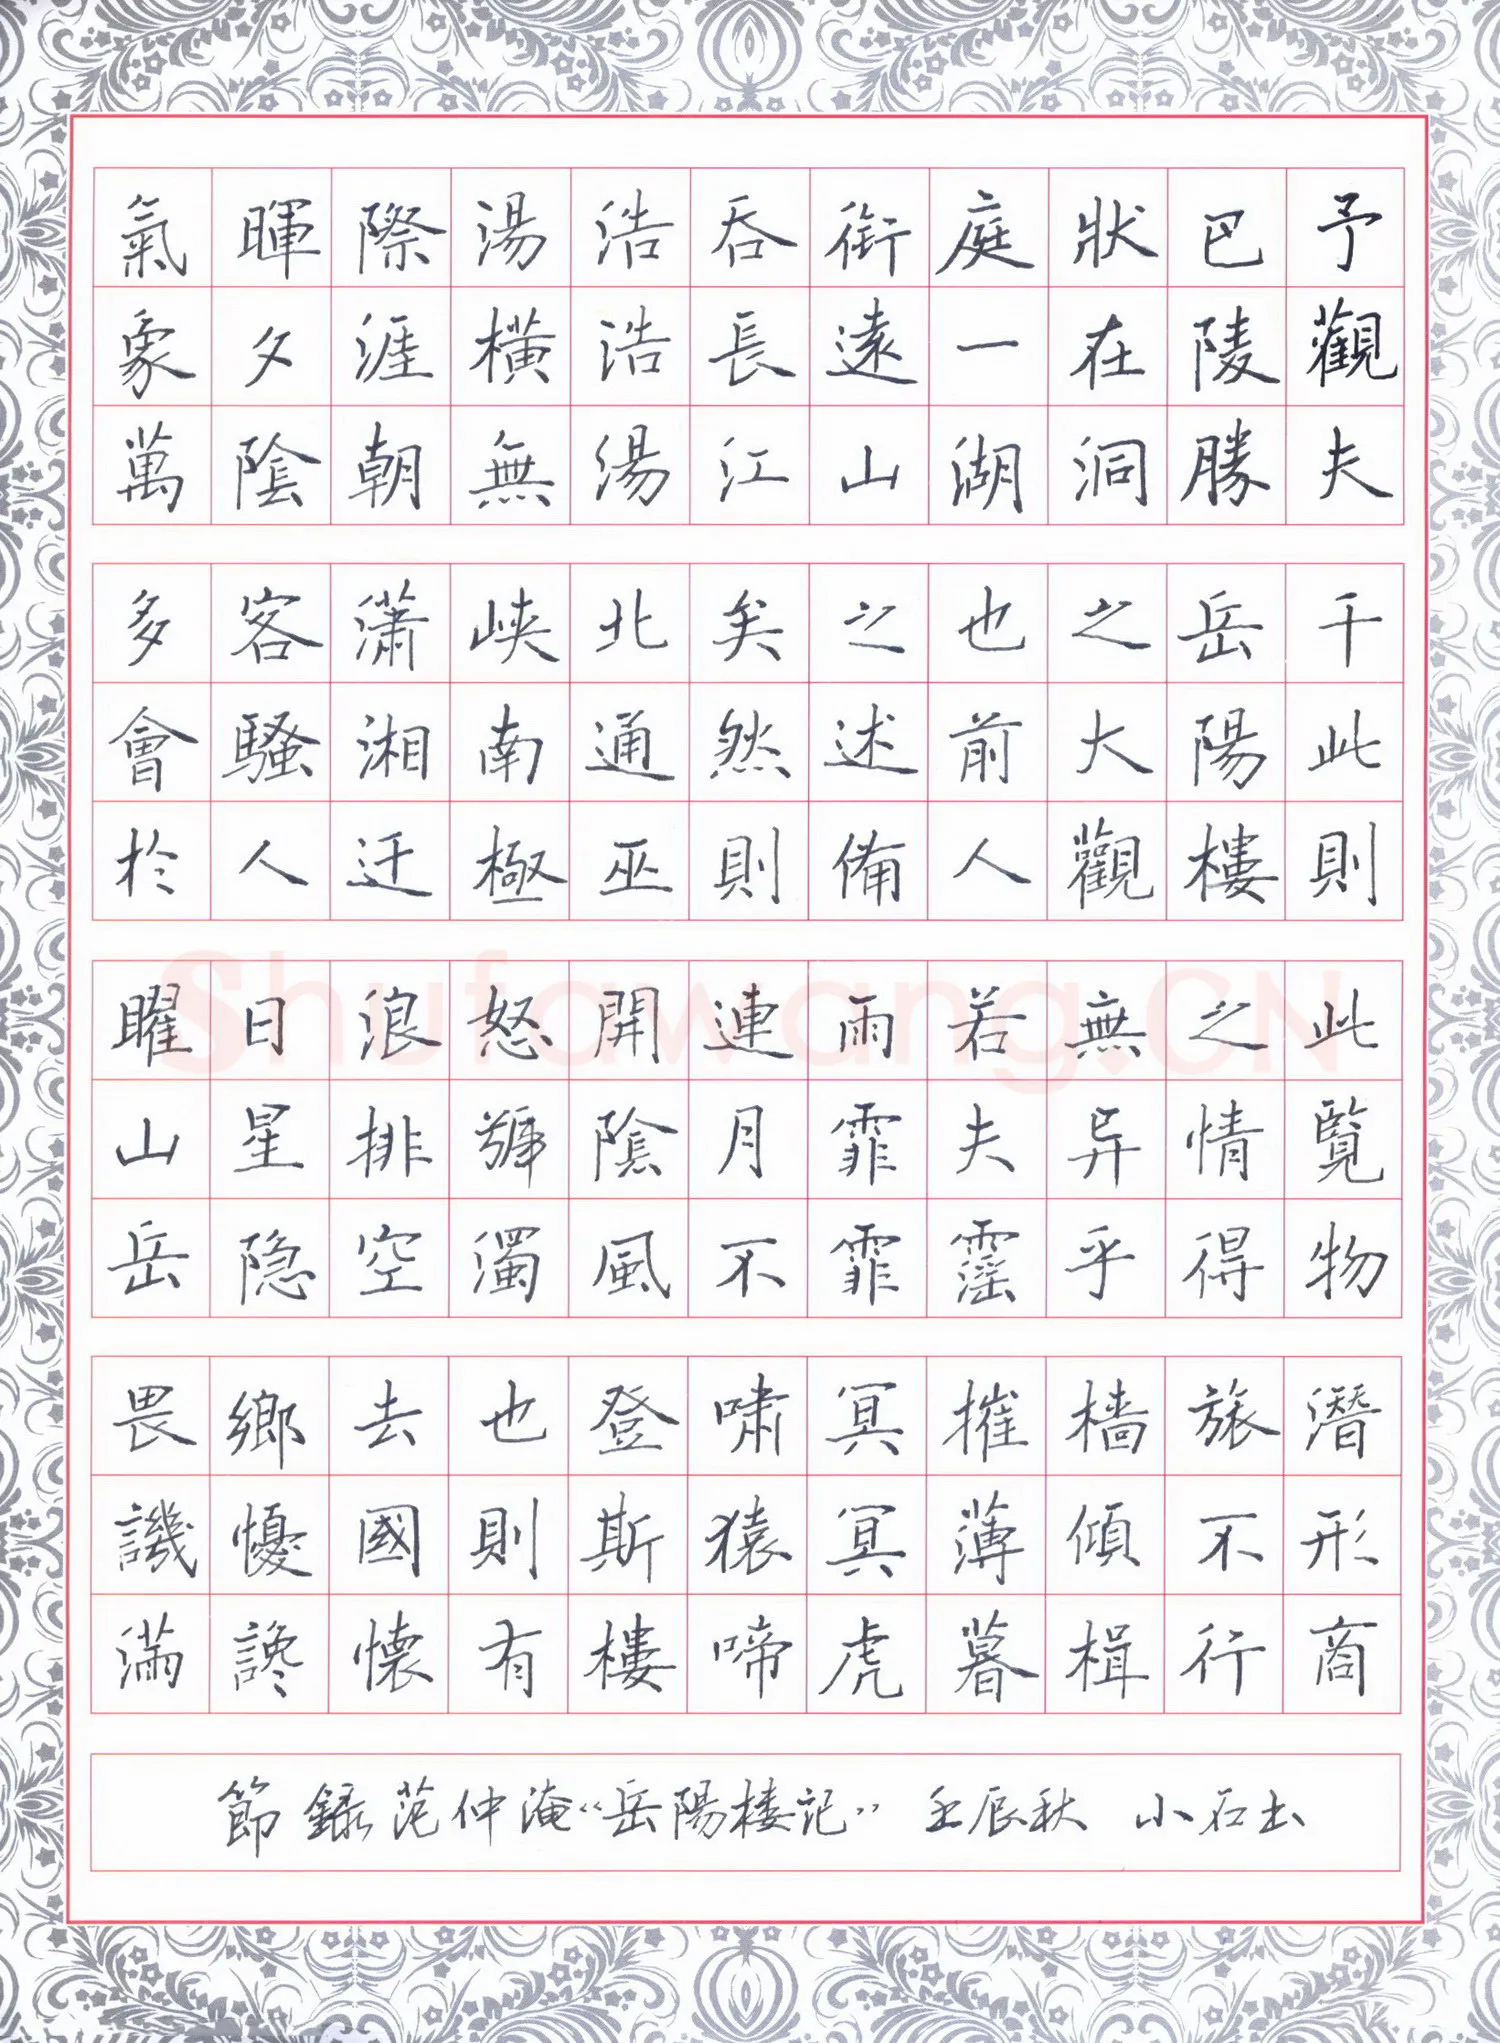 予觀夫
巴陵勝
狀在洞
庭一湖
銜遠山
吞長江
浩浩湯
湯橫無
際涯朝
暉夕陰
氣象萬
千此則
岳陽樓
之大觀
也前人
之述備
矣然則
北通巫
峽南極
瀟湘迁
客騷人
多會於
此覽物
之情得
無异乎
若夫霪
雨霏霏
連月不
開陰風
怒號濁
浪排空
日星隐
曜山岳
潛形商
旅不行
檣傾楫
摧薄暮
冥冥虎
啸猿啼
登斯樓
也則有
去國懷
鄉懮讒
畏譏滿
節錄范仲淹“岳陽楼記” 壬辰秋 小石
Shufawang.CN